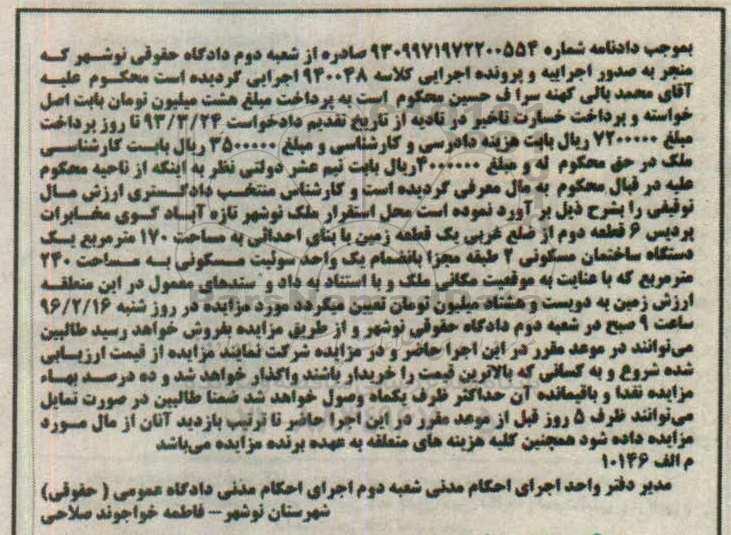 بموجب دادنامه شماره ۹۳۰۹۹۷۱۹۷۲۲۰۰۵۵۴ صادره از شعبه دوم دادگاه حقوقی نوشهر که
منجر به صدور اجراییه و پرونده اجرایی کلاسه ۹۴۰۰۴۸ اجرایی گردیده است محکوم علیه
آقای محمد بالی کهنه سرا ف حسین محکوم است به پرداخت مبلغ هشت میلیون تومان بابت اصل
خواسته و پرداخت خسارت تاخیر در تادیه از تاریخ تقدیم دادخواست ۹۳/۳/۲۴ تا روز پرداخت
مبلغ ۷۲۰۰۰۰۰ ریال بابت هزینه دادرسی و کارشناسی و مبلغ ۳۵۰۰۰۰۰ ریال بابت کارشناسی
ملک در حق محکوم له و مبلغ ۴۰۰۰۰۰۰ریال بابت نیم عشر دولتی نظر به اینکه از ناحیه محکوم
علیه در قبال محکوم به مال معرفی گردیده است و کارشناس منتخب دادگستری ارزش مال
توقیفی را بشرح ذیل بر آورد نموده است محل استقرار ملک نوشهر تازه آباد کوی مخابرات
پردیس ۶ قطعه دوم از ضلع غربی یک قطعه زمین با بنای احداثی به مساحت ۱۷۰ مترمربع یک
دستگاه ساختمان مسکونی ۲ طبقه مجزا بانضمام یک واحد سوئیت مسکونی به مساحت ۲۴۰
مترمربع که با عنایت به موقعیت مکانی ملک و با استناد به داد و ستدهای معمول در این منطقه
ارزش زمین به دویست و هشتاد میلیون تومان تعیین میگردد مورد مزایده در روز شنبه ۹۶/۲/۱۶
ساعت ۹ صبح در شعبه دوم دادگاه حقوقی نوشهر و از طریق مزایده بفروش خواهد رسید طالبین
می‌توانند در موعد مقرر در این اجرا حاضر و در مزایده شرکت نمایند مزایده از قیمت ارزیابی
شده شروع و به کسانی که بالاترین قیمت را خریدار باشند واگذار خواهد شد و ده درصد بهاء
مزایده نقدا و باقیمانده آن حداکثر ظرف یکماه وصول خواهد شد ضمنا طالبین در صورت تمایل
می‌توانند ظرف ۵ روز قبل از موعد مقرر در این اجرا حاضر تا ترتیب بازدید آنان از مال مورد
مزایده داده شود همچنین کلیه هزینه های متعلقه به عهده برنده مزایده می‌باشد
م الف ۱۰۱۴۶
مدیر دفتر واحد اجرای احکام مدنی شعبه دوم اجرای احکام مدنی دادگاه عمومی ( حقوقی)
شهرستان نوشهر -- فاطمه خواجوند صلاحی